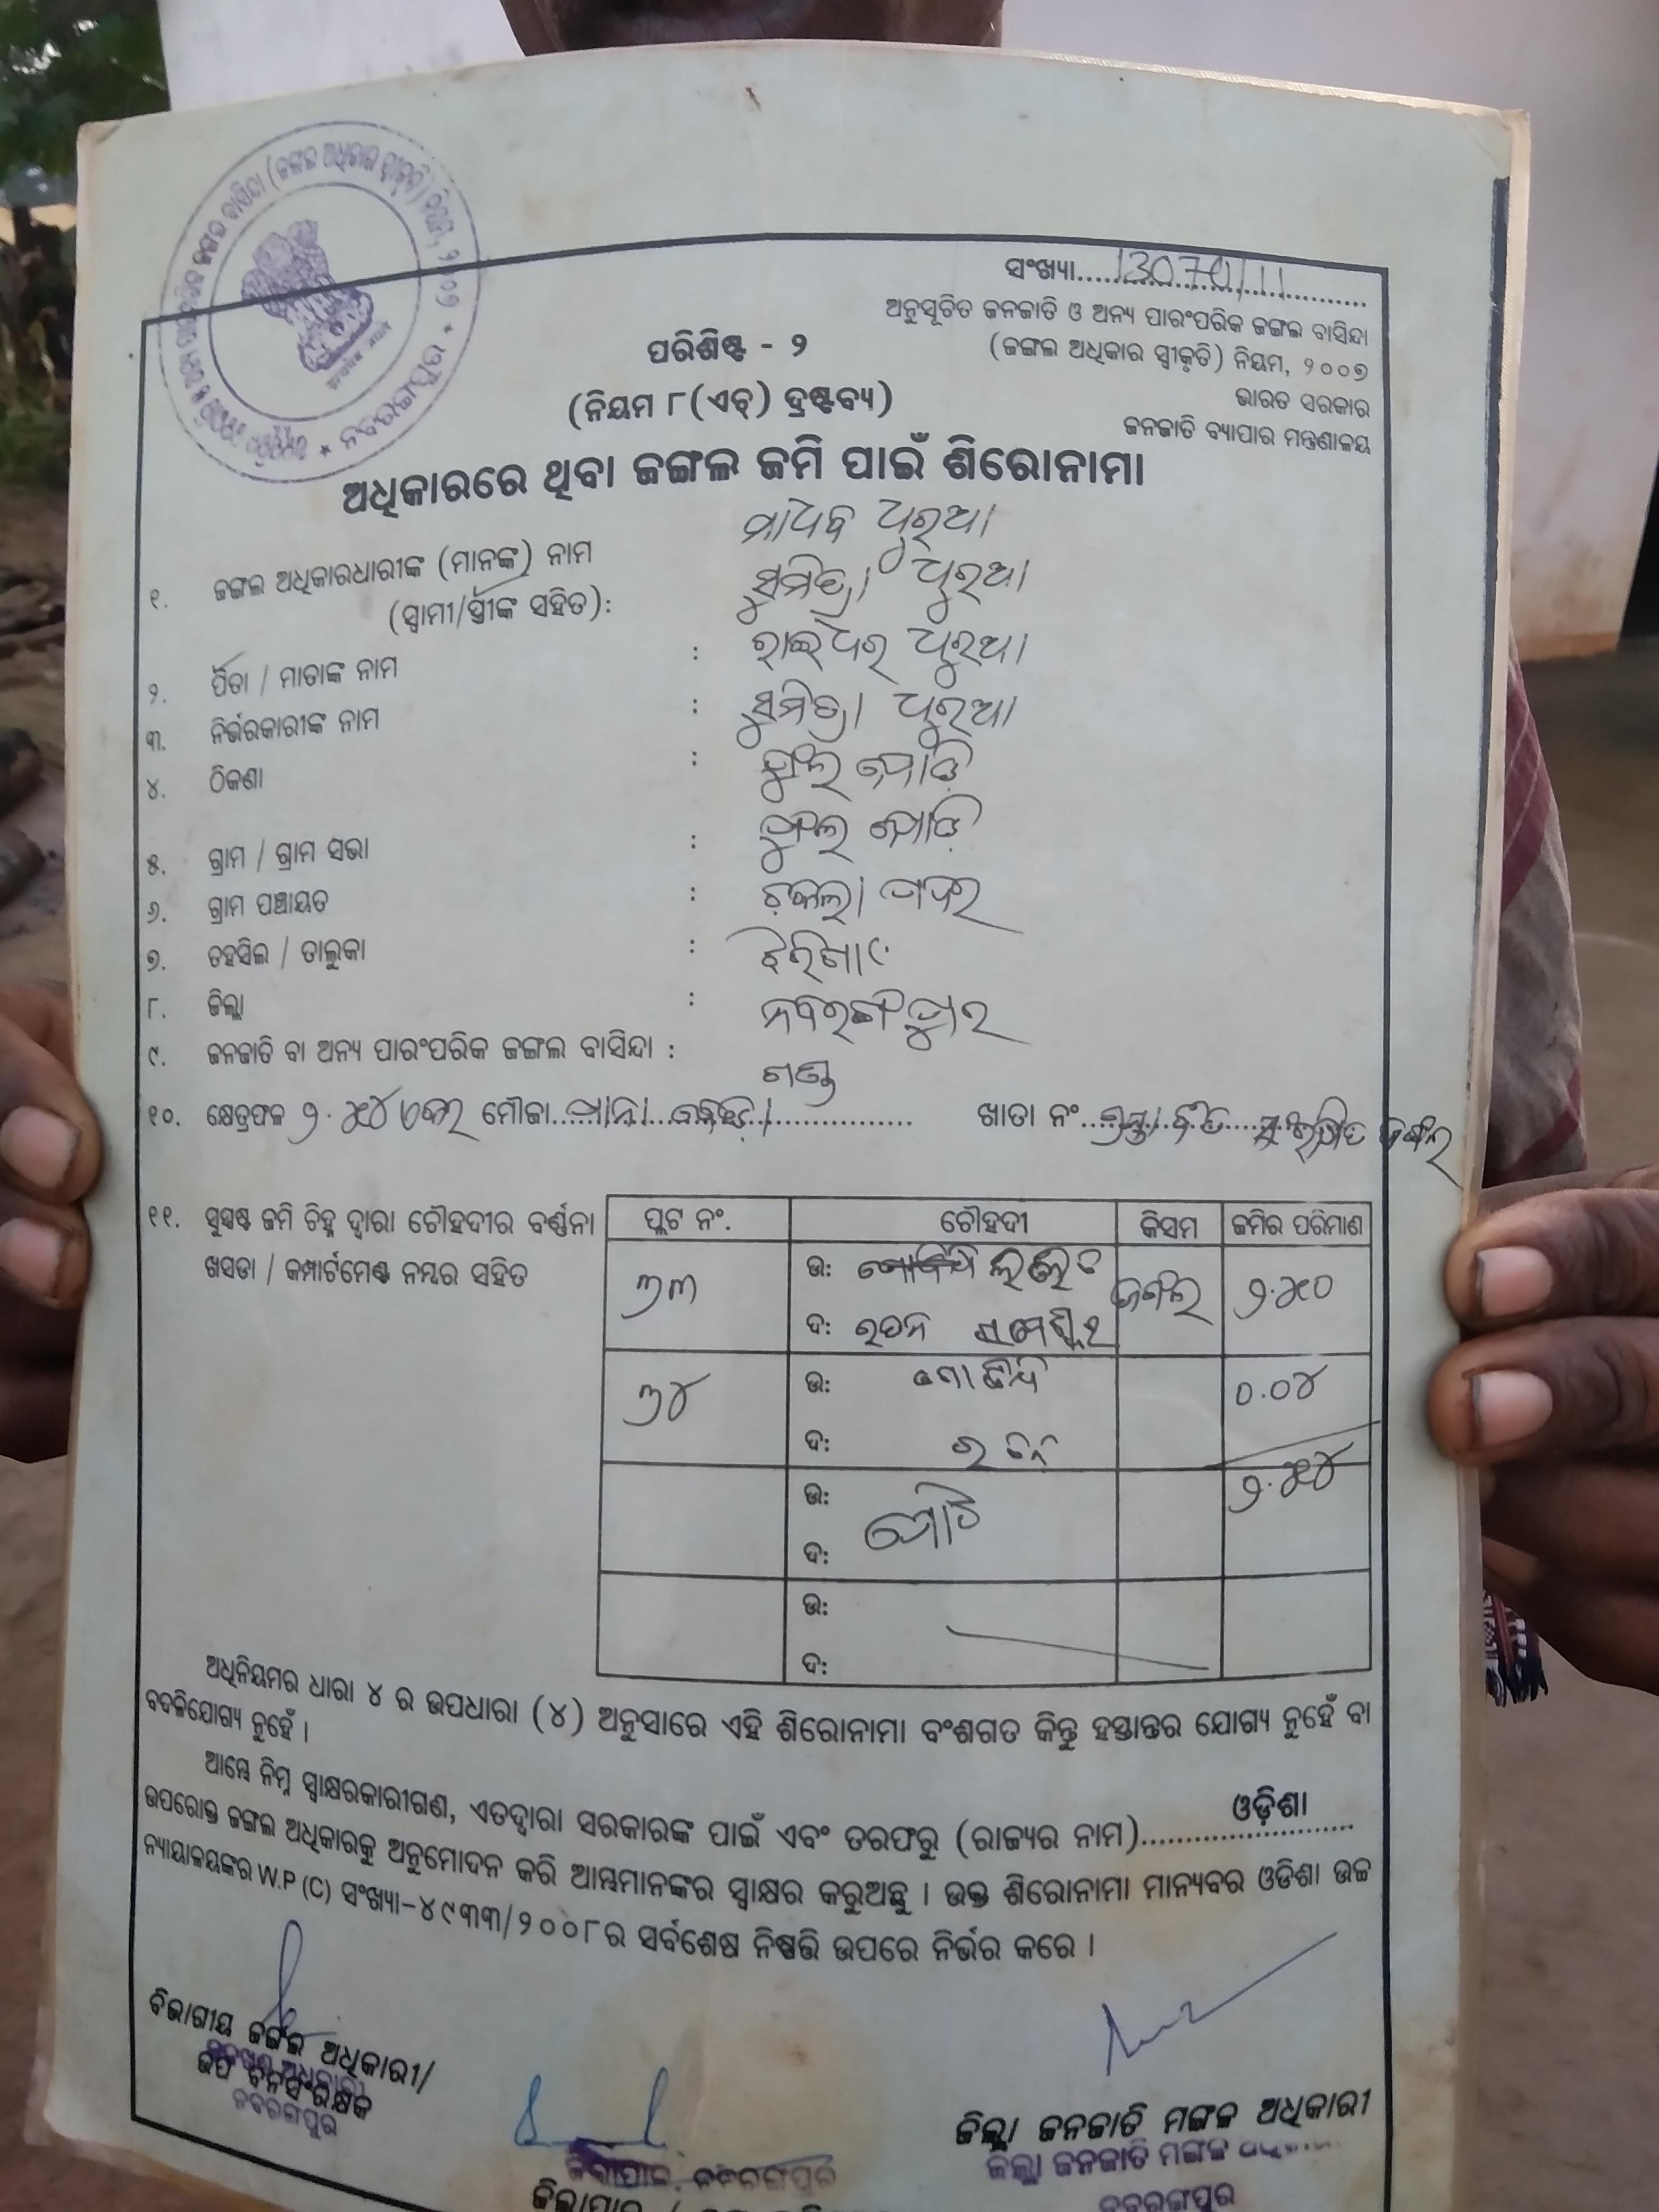 ସଂଖ୍ୟା....
ଅନୁସୂଚିତ ଜନଜାତି ଓ ଅନ୍ୟ ପାରଂପରିକ ଜଙ୍ଗଲ ବାସିନ୍ଦା
(ଜଙ୍ଗଲ ଅଧିକାର ସ୍ୱୀକୃତି) ନିୟମ, ୨୦୦୭
ଭାରତ ସରକାର
ଜନଜାତି ବ୍ୟାପାର ମନ୍ତ୍ରଣାଳୟ
ପରିଶିଷ୍ଟ - ୨
(ନିୟମ ୮(ଏଚ୍) ଦ୍ରଷ୍ଟବ୍ୟ)
ଅଧିକାରରେ ଥିବା ଜଙ୍ଗଲ ଜମି ପାଇଁ ଶିରୋନାମା
୧. ଜଙ୍ଗଲ ଅଧିକାରଧାରୀଙ୍କ (ମାନଙ୍କ) ନାମ ମାଧବ ଧୁରୁଆ
(ସ୍ୱାମୀ/ସ୍ତ୍ରୀଙ୍କ ସହିତ): ସୁମିତ୍ରା ଧୁରୁଆ
୨. ପିତା / ମାତାଙ୍କ ନାମ : ରାଇଧର ଧୁରୁଆ
୩. ନିର୍ଭରକାରୀଙ୍କ ନାମ : ସୁମିତ୍ରା ଧୁରୁଆ
୪. ଠିକଣା : ଫୁଲ
୫. ଗ୍ରାମ / ଗ୍ରାମ ସଭା : ଫୁଲ
୬. ଗ୍ରାମ ପଞ୍ଚାୟତ : ଚକଲା ପଦର
୭. ତହସିଲ / ତାଲୁକା : ଝରିଗାଁ
୮. ଜିଲ୍ଲା : ନବରଙ୍ଗପୁର
୯. ଜନଜାତି ବା ଅନ୍ୟ ପାରଂପରିକ ଜଙ୍ଗଲ ବାସିନ୍ଦା : ଗଣ୍ଡ
୧୦. କ୍ଷେତ୍ରଫଳ ୨.୪୫୪ ଏକର ମୌଜା.... ଖାତା ନଂ.... ପ୍ରସ୍ତାବିତ ସଂରକ୍ଷିତ ଜଙ୍ଗଲ
୧୧. ସୁସ୍ପଷ୍ଟ ଜମି ଚିହ୍ନ ଦ୍ୱାରା ଚୌହଦୀର ବର୍ଣ୍ଣନା
ଖସଡା / କମ୍ପାର୍ଟମେଣ୍ଟ ନମ୍ବର ସହିତ
ପ୍ଲଟ ନଂ. ଚୌହଦୀ କିସମ ଜମିର ପରିମାଣ
୩୩ ଉ: ଜଙ୍ଗଲ
ଦ: ରତନ
୩୪ ଉ: ଗୋବିନ୍ଦ ୦.୦୪
ଦ: ରତନ
ଉ:
ଦ: ମୋଟ
ଉ:
ଦ:
ଅଧିନିୟମର ଧାରା ୪ ର ଉପଧାରା (୪) ଅନୁସାରେ ଏହି ଶିରୋନାମା ବଂଶଗତ କିନ୍ତୁ ହସ୍ତାନ୍ତର ଯୋଗ୍ୟ ନୁହେଁ ବା
ବଦଳିଯୋଗ୍ୟ ନୁହେଁ ।
ଆମ୍ଭେ ନିମ୍ନ ସ୍ୱାକ୍ଷରକାରୀଗଣ, ଏତଦ୍ୱାରା ସରକାରଙ୍କ ପାଇଁ ଏବଂ ତରଫରୁ (ରାଜ୍ୟର ନାମ)....ଓଡ଼ିଶା....
ଉପରୋକ୍ତ ଜଙ୍ଗଲ ଅଧିକାରକୁ ଅନୁମୋଦନ କରି ଆମ୍ଭମାନଙ୍କର ସ୍ୱାକ୍ଷର କରୁଅଛୁ । ଉକ୍ତ ଶିରୋନାମା ମାନ୍ୟବର ଓଡିଶା ଉଚ୍ଚ
ନ୍ୟାୟାଳୟଙ୍କର W.P (C) ସଂଖ୍ୟା-୪୯୩୩/୨୦୦୮ର ସର୍ବଶେଷ ନିଷ୍ପତ୍ତି ଉପରେ ନିର୍ଭର କରେ ।
ବିଭାଗୀୟ ଜଙ୍ଗଲ ଅଧିକାରୀ/
ଉପ ବନସଂରକ୍ଷକ
ନବରଙ୍ଗପୁର
ଜିଲ୍ଲାପାଳ, ନବରଙ୍ଗପୁର
ଜିଲ୍ଲା ଜନଜାତି ମଙ୍ଗଳ ଅଧିକାରୀ
ଜିଲ୍ଲା ଜନଜାତି ମଙ୍ଗଳ
ନବରଙ୍ଗପୁର